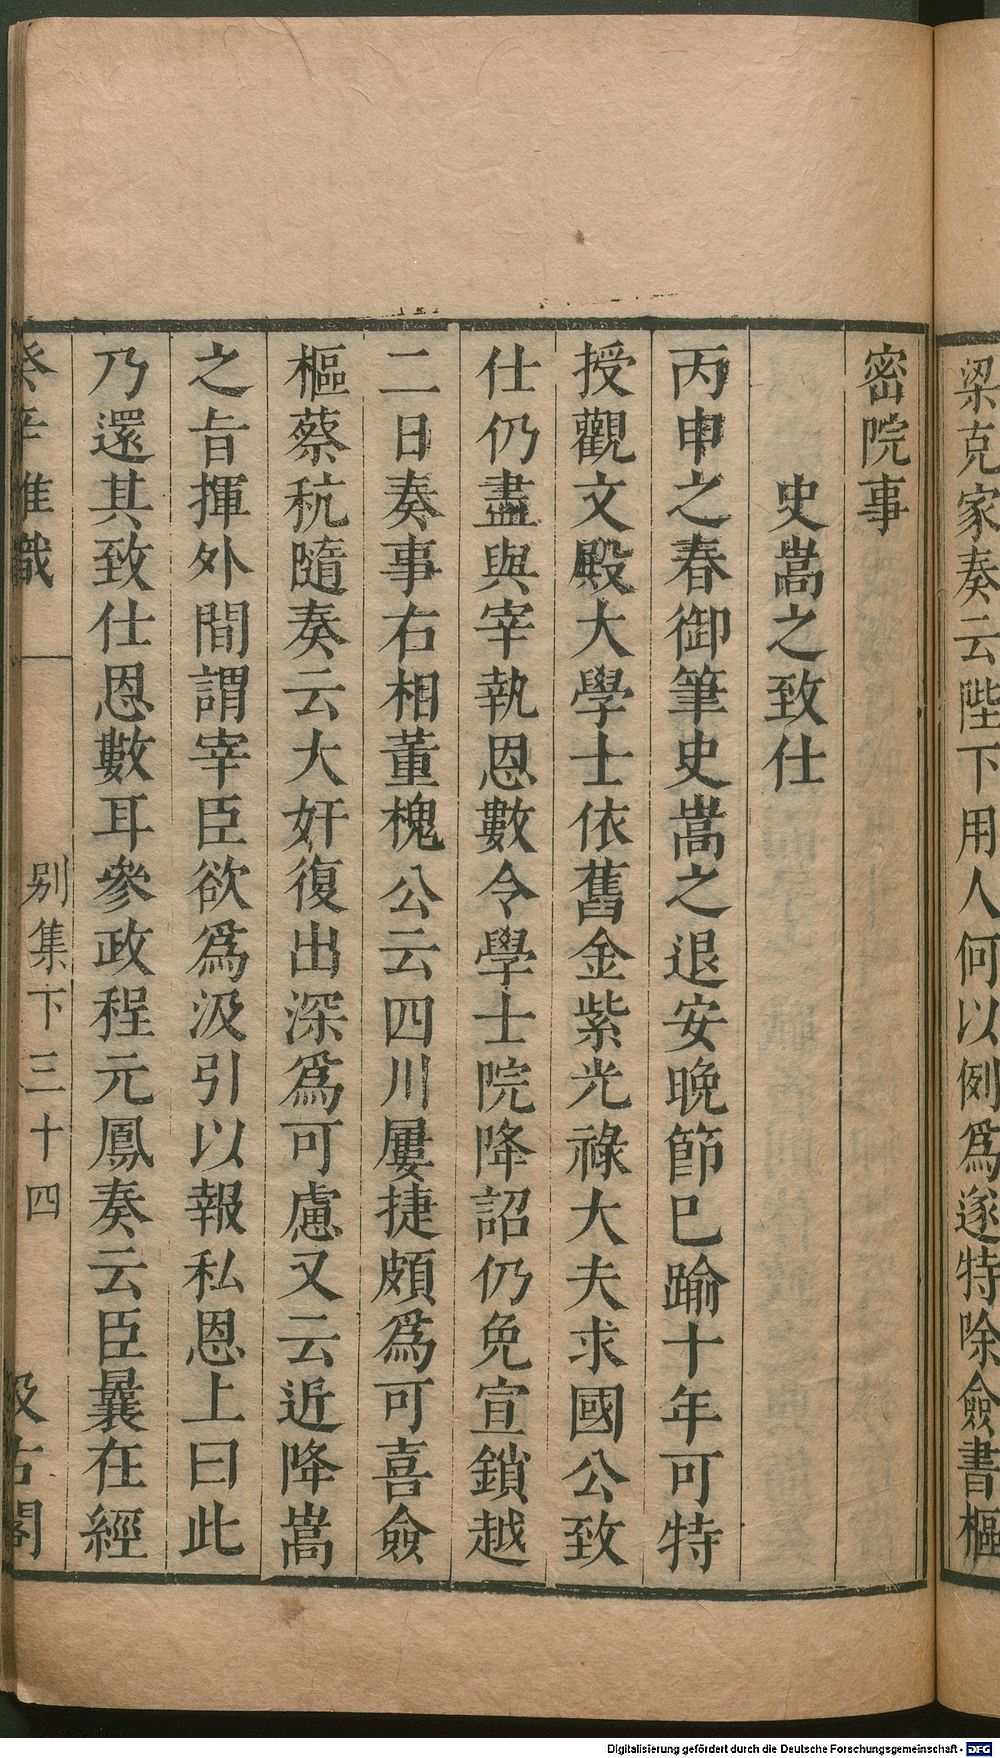 梁克家奏云陛下用人何以例爲遂特除僉書樞
密院事
史嵩之致仕
丙申之春御筆史嵩之退安晚節已踰十年可特
授觀文殿大學士依舊金紫光祿大夫求國公致
仕仍盡與宰執恩數令學士院降詔仍免宣鎖越
二日奏事右相董槐公云四川屢捷頗爲可喜僉
樞蔡秔隨奏云大奸復出深爲可慮又云近降嵩
之旨揮外間謂宰臣欲爲汲引以報私恩上曰此
乃還其致仕恩數耳參政程元鳳奏云臣曩在經
癸辛雜識 別集下 三十四 汲古閣
Digitalisierung gefördert durch die Deutsche Forschungsgemeinschaft - DFG